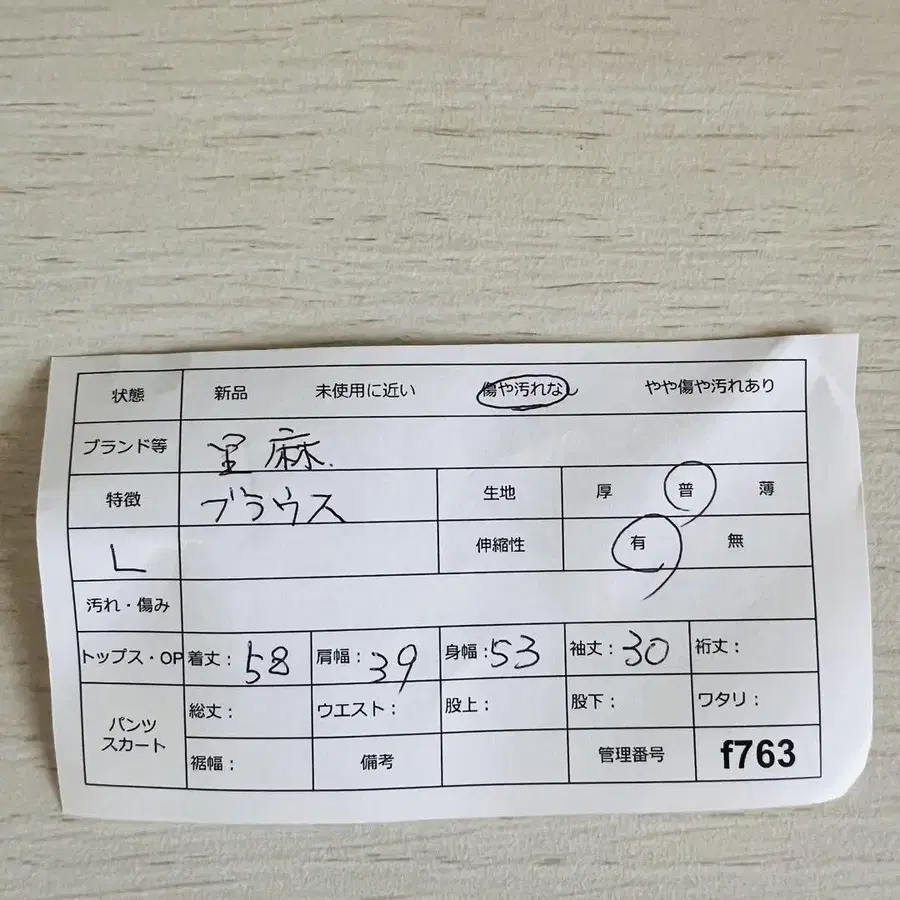 状態 新品 未使用に近い 傷や汚れな やや傷や汚れあり
ブランド等 麻
特徴 ブラウス 生地 厚 普 薄
L 伸縮性 有 無
汚れ・傷み
トップス・OP 着丈：58 肩幅：39 身幅：53 袖丈：30 裄丈：
パンツ
スカート
総丈： ウエスト： 股上： 股下： ワタリ：
裾幅： 備考 管理番号 f763